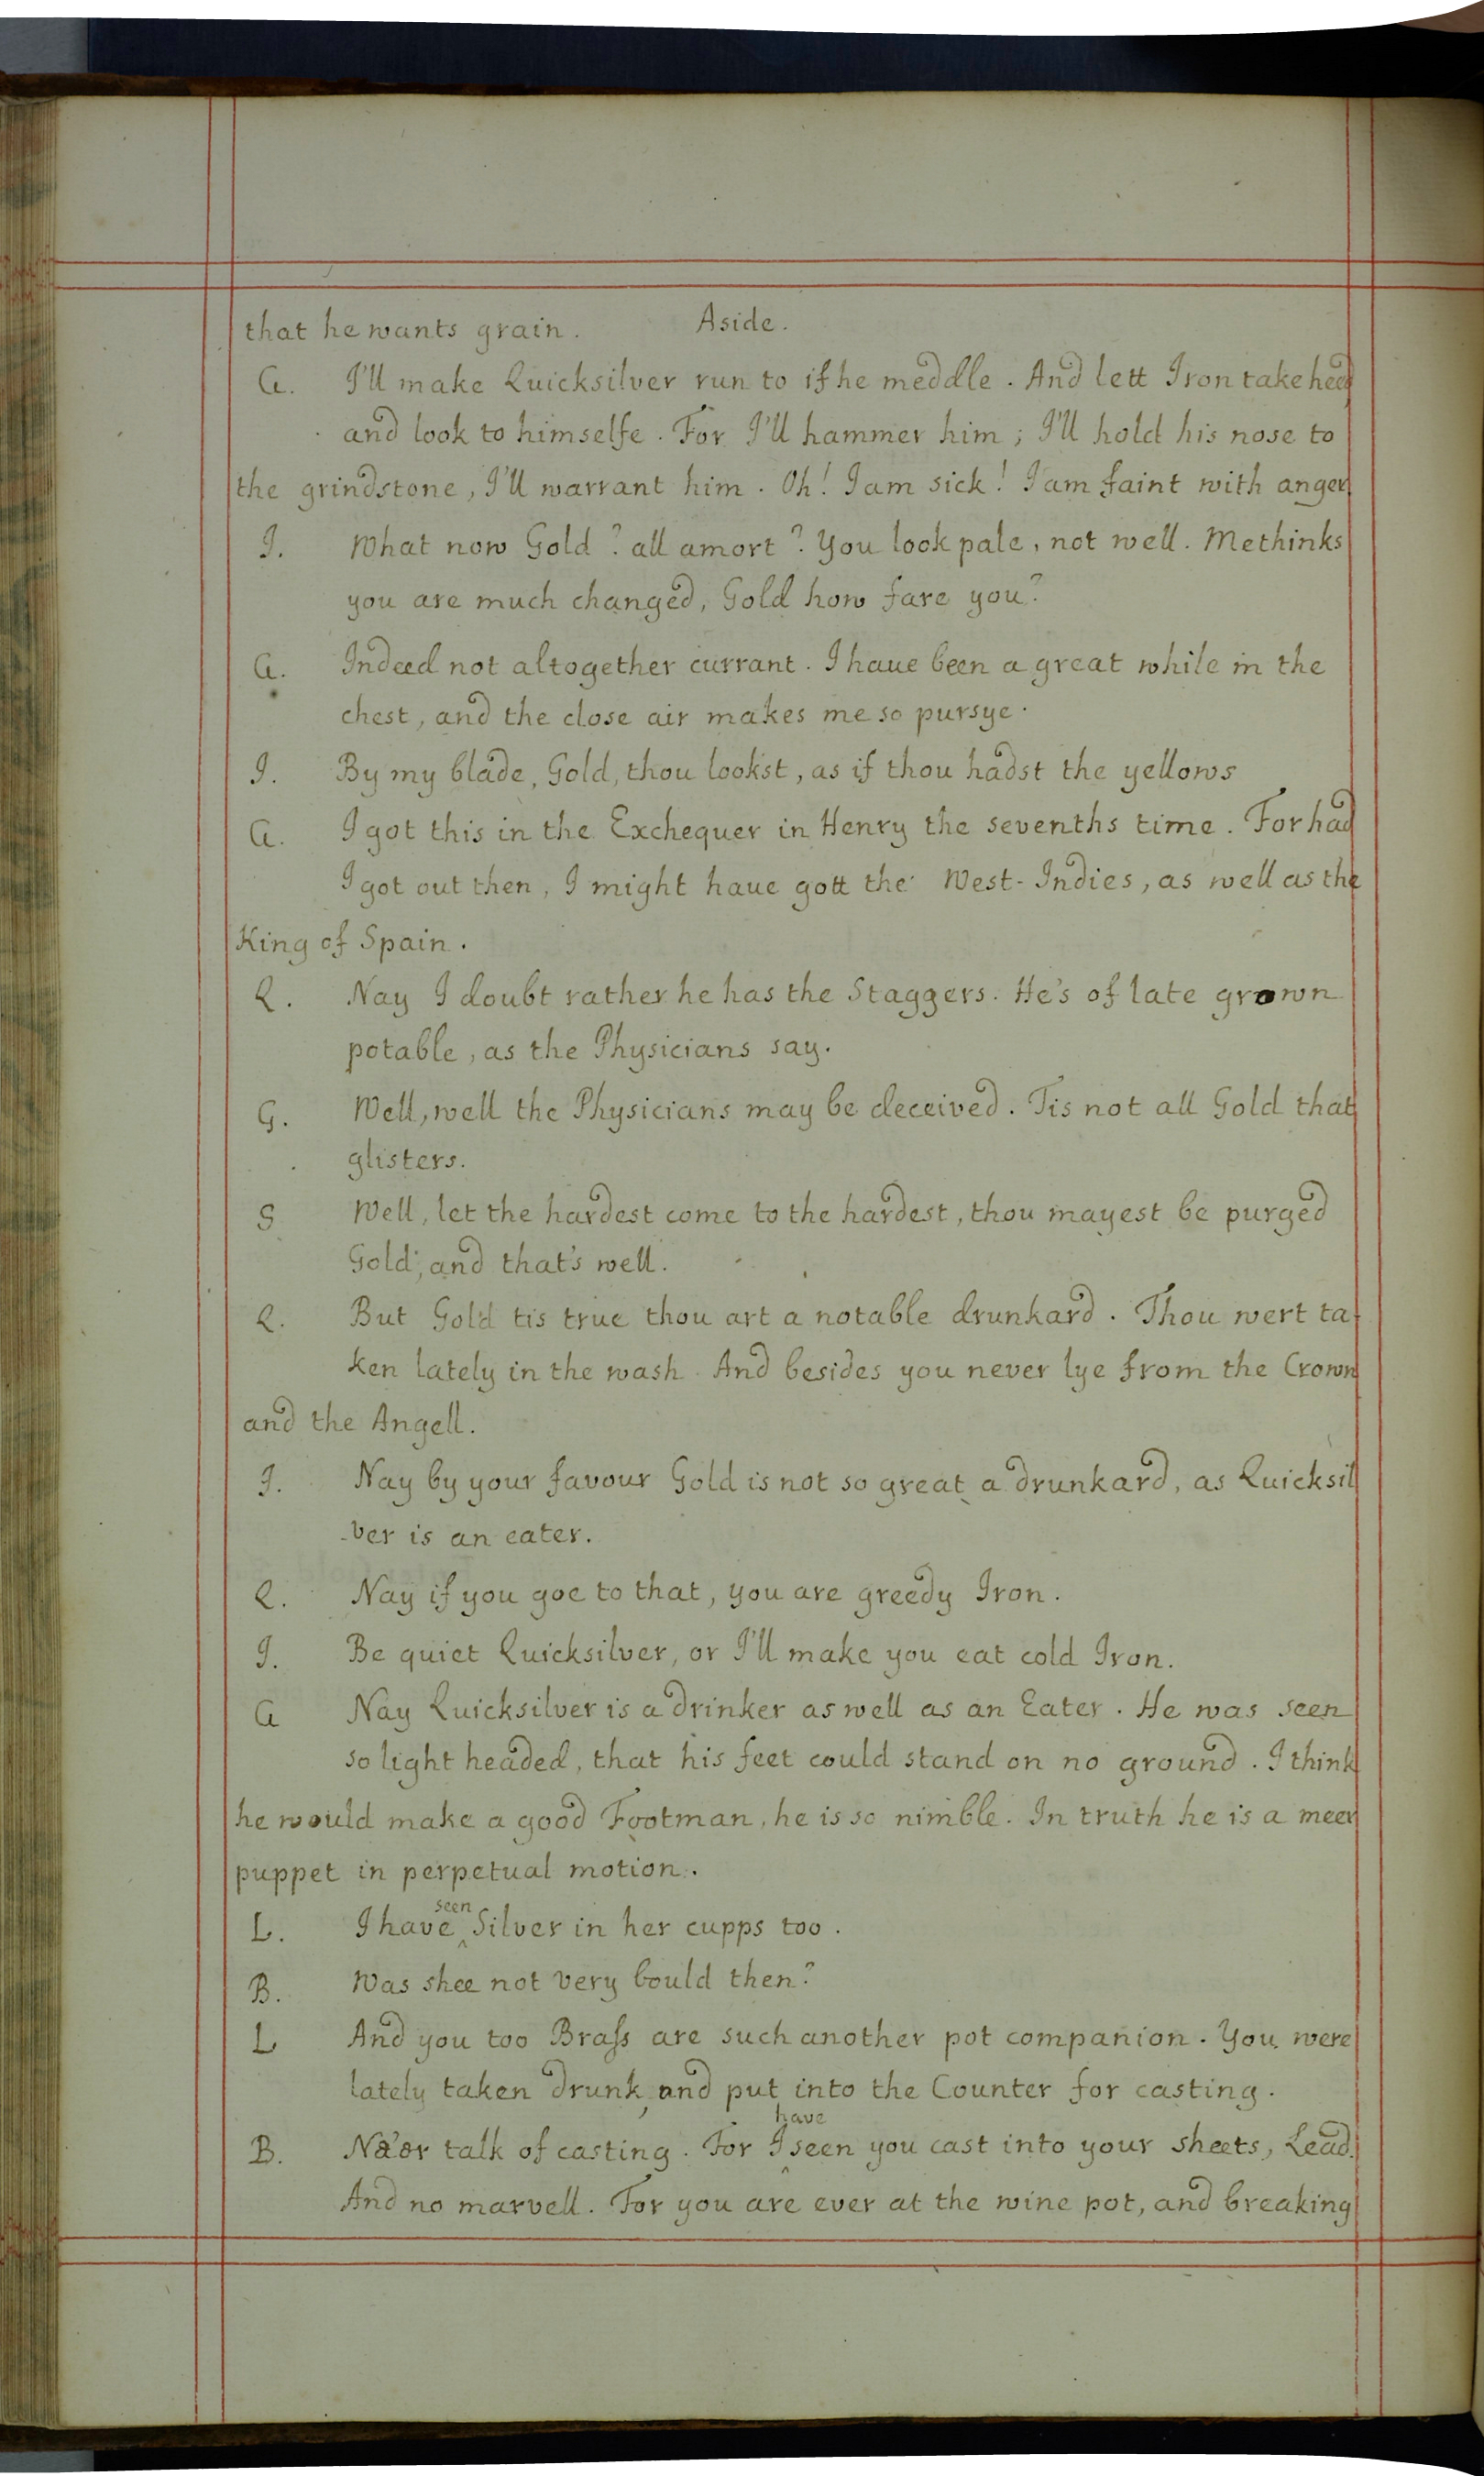 that he wants grain. Aside.
G. I'll make Quicksilver run to if he meddle. And lett Iron take heed
and look to himselfe. For I'll hammer him; I'll hold his nose to
the grindstone, I'll warrant him. Oh! I am sick! I am faint with anger
I. What now Gold? all amort? You look pale, not well. Methinks
you are much changed, Gold how fare you?
G. Indeed not altogether currant. I haue been a great while in the
chest, and the close air makes me so pursye.
I. By my blade, Gold, thou lookst, as if thou hadst the yellows
G. I got this in the Exchequer in Henry the sevenths time. For had
I got out then, I might haue gott the West-Indies, as well as the
King of Spain.
Q. Nay I doubt rather he has the Staggers. He's of late grown
potable, as the Physicians say.
G. Well, well the Physicians may be deceived. Tis not all Gold that
glisters.
S Well, let the hardest come to the hardest, thou mayest be purged
Gold; and that's well.
Q. But Gold tis true thou art a notable drunkard. Thou wert ta-
ken lately in the wash. And besides you never lye from the Crown
and the Angell.
I. Nay by your favour Gold is not so great a drunkard, as Quicksil
-ver is an eater.
Q. Nay if you goe to that, you are greedy Iron.
I. Be quiet Quicksilver, or I'll make you eat cold Iron.
G Nay Quicksilver is a drinker as well as an Eater. He was seen
so light headed, that his feet could stand on no ground. I think
he would make a good Footman, he is so nimble. In truth he is a meer
puppet in perpetual motion.
L. I have ^seen Silver in her cupps too.
B. Was shee not very bould then?
L And you too Braſs are such another pot companion. You were
lately taken drunk, and put into the Counter for casting.
B. talk of casting. For I ^have seen you cast into your sheets, Lead.
And no marvell. For you are ever at the wine pot, and breaking